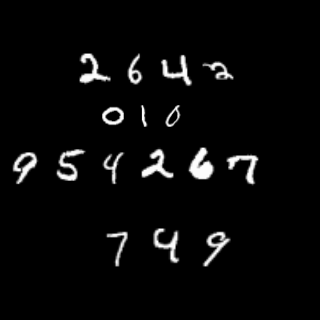 2642
010
954267
749